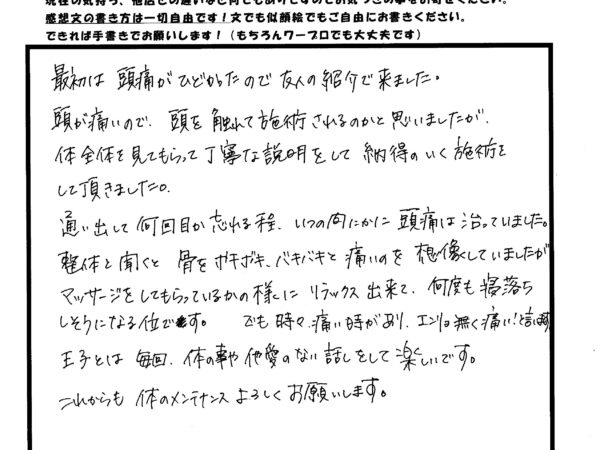 感想文の書き方は一切自由です！文でも似顔絵でもご自由にお書きください。
できれば手書きでお願いします！（もちろんワープロでも大丈夫です）
最初は 頭痛がひどかったので 友人の紹介で来ました。
頭が痛いので、頭を触れて施術されるのかと思いましたが、
体全体を見てもらって丁寧な説明をして 納得のいく施術を
して頂きました。
通い出して何回目か忘れる程、いつの間にかに頭痛は治っていました。
整体と聞くと 骨をボキボキ、バキバキと痛いのを想像していましたが
マッサージをしてもらっているかの様にリラックス出来て、何度も寝落ち
しそうになる位です。 でも時々、痛い時があり、エンリョ無く痛い！と言います
王子とは 毎回、体の事や他愛のない話しをして楽しいです。
これからも 体のメンテナンスよろしくお願いします。